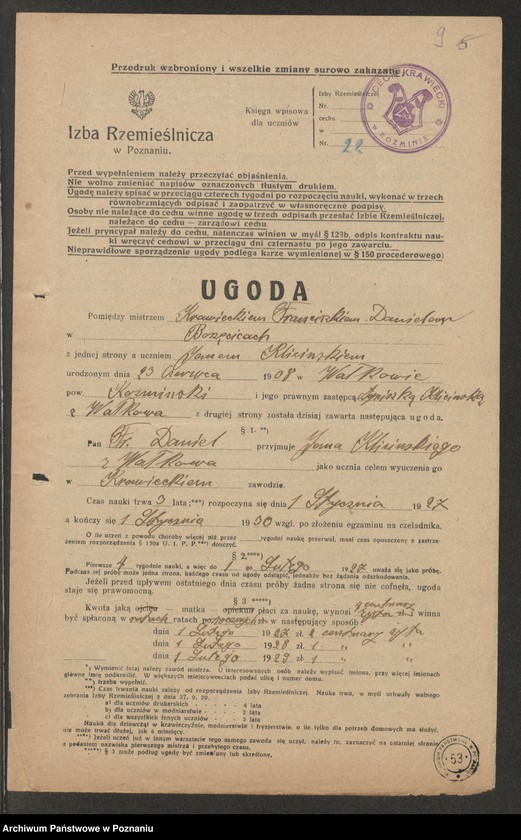 9 5
Przedruk wzbroniony i wszelkie zmiany surowo zakazane
Izba Rzemieślnicza
w Poznaniu.
Księga wpisowa
dla uczniów
Izby Rzemieślniczej
Nr.
cechu
w
Nr. 22
CECH KRAWIECKI
w KOŹMINIE
Przed wypełnieniem należy przeczytać objaśnienia.
Nie wolno zmieniać napisów oznaczonych tłustym drukiem.
Ugodę należy spisać w przeciągu czterech tygodni po rozpoczęciu nauki, wykonać w trzech
równobrzmiących odpisać i zaopatrzyć w własnoręczne podpisy.
Osoby nie należące do cechu winne ugodę w trzech odpisach przesłać Izbie Rzemieślniczej,
należące do cechu — zarządowi cechu.
Jeżeli pryncypał należy do cechu, natenczas winien w myśl § 129b, odpis kontraktu nau-
ki wręczyć cechowi w przeciągu dni czternastu po jego zawarciu.
Nieprawidłowe sporządzenie ugody podlega karze wymienionej w § 150 procederowej)
UGODA
Pomiędzy mistrzem Krawieckiem Franciszkiem Danielem
w
z jednej strony a uczniem Janem Klicinskiem
urodzonym dnia 23 Czerwca 1908 w Wałkowie
pow. Kozminski i jego prawnym zastępcą Klicinską
z Wałkowa z drugiej strony została dzisiaj zawarta następująca ugoda.
§ 1. **)
Pan Fr. Daniel przyjmuje Jana Klicinskiego
z Wałkowa jako ucznia celem wyuczenia go
w Krawieckiem zawodzie.
Czas nauki trwa 3 lata;***) rozpoczyna się dnia 1 Stycznia 1927
a kończy się 1 Stycznia 1930 wzgl. po złożeniu egzaminu na czeladnika.
O ile uczeń z powodu choroby więcej niż przez tygodni naukę przerwał, musi czas opuszczony z zastrze-
żeniem rozporządzenia § 130a U. I. P. P.***) douczyć.
§ 2.****)
Pierwsze 4 tygodnie nauki, a więc do 1 go Lutego 1927 uważa się jako próbę.
Podczas tej próby może jedna strona, każdego czasu od ugody odstąpić, jednakże bez żądania odszkodowania.
Jeżeli przed upływem ostatniego dnia czasu próby żadna strona się nie cofnęła, ugoda
staje się prawomocną.
§ 3 ****)
Kwota jaką ojciec — matka — opiekun płaci za naukę, wynosi winna
być spłaconą w ratach ratach w następujący sposób:
dnia 1 Lutego 1927 zł. 2 centnary żyta
dnia 1 Lutego 1928 zł. 1 „ „
dnia 1 Lutego 1929 zł. 1 „ „
*) Wymienić tutaj należy zawód mistrza. U interesowanych osób należy wypisać imiona, przy więcej imionach
główne imię podkreślić. W większych miejscowościach podać ulicę i numer domu.
**) trzeba wypełnić.
***) Czas trwania nauki zależy od rozporządzenia Izby Rzemieślniczej. Nauka trwa, w myśl uchwały walnego
zebrania Izby Rzemieślniczej z dnia 27. 9. 20.
a) dla uczniów drukarskich - - - - - 4 lata
b) dla uczniów w modniarstwie - - - - 2 lata
c) dla wszystkich innych uczniów - - - 3 lata
Nauka dla dziewcząt w krawieczyźnie, modniarstwie i fryzjerstwie, o ile tylko dla potrzeb domowych ma służyć,
nie może trwać dłużej, jak 6 miesięcy.
****) Jeżeli uczeń już w innym warsztacie tego samego zawodu się uczył, należy to, zaznaczyć na ostatniej stronie
z podaniem nazwiska pierwszego mistrza i przebytego czasu.
*****) § 3 może podług ugody być zmieniony lub skreślony.
53
Archiwum Państwowe w Poznaniu